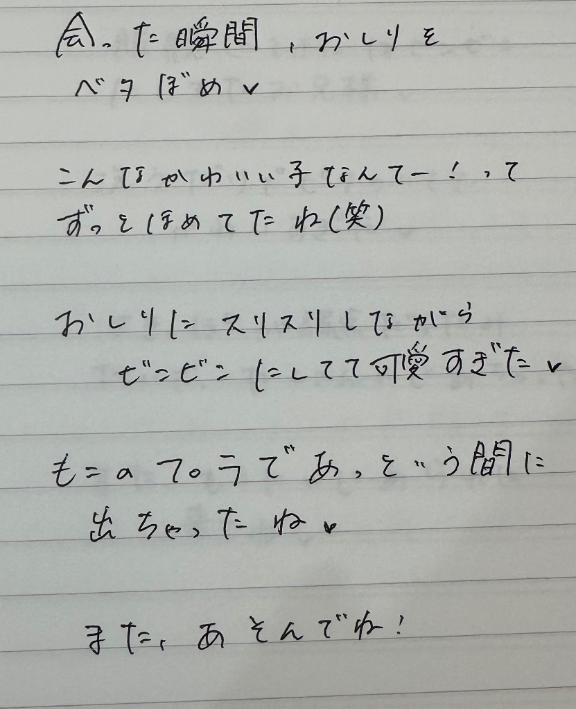 会った瞬間，おしりを
ベタぼめ♥
こんなかわいい子なんてー！って
ずっとほめてたね(笑)
おしりにスリスリしながら
ビンビンにしてて可愛すぎた♥
もこのフェラであっという間に
出ちゃったね♥
また，あそんでね！